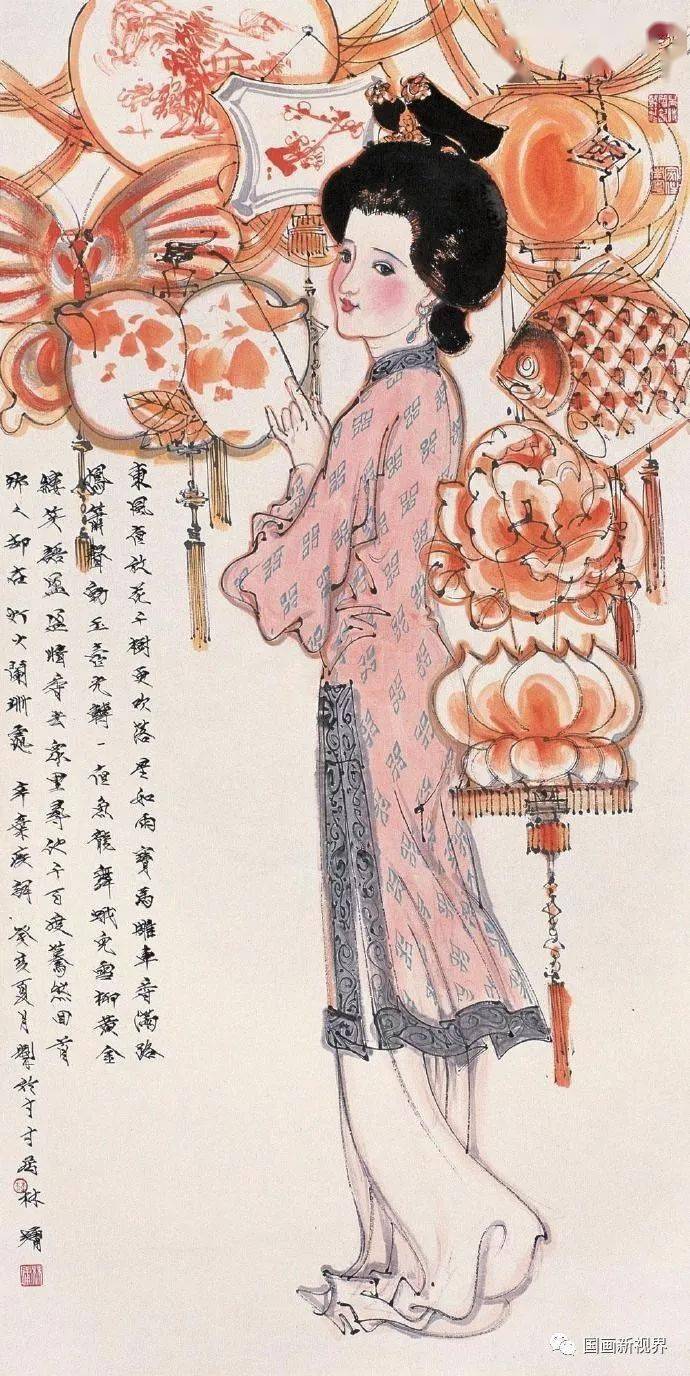 東風夜放花千樹更吹落星如雨寶馬雕車香滿路
鳳簫聲動玉壺光轉一夜魚龍舞蛾兒雪柳黄金
縷笑語盈盈暗香去衆里尋他千百度驀然回首
那人却在灯火闌珊處 辛棄疾詞 癸亥夏月 於寸寸居 林墉
国画新视界